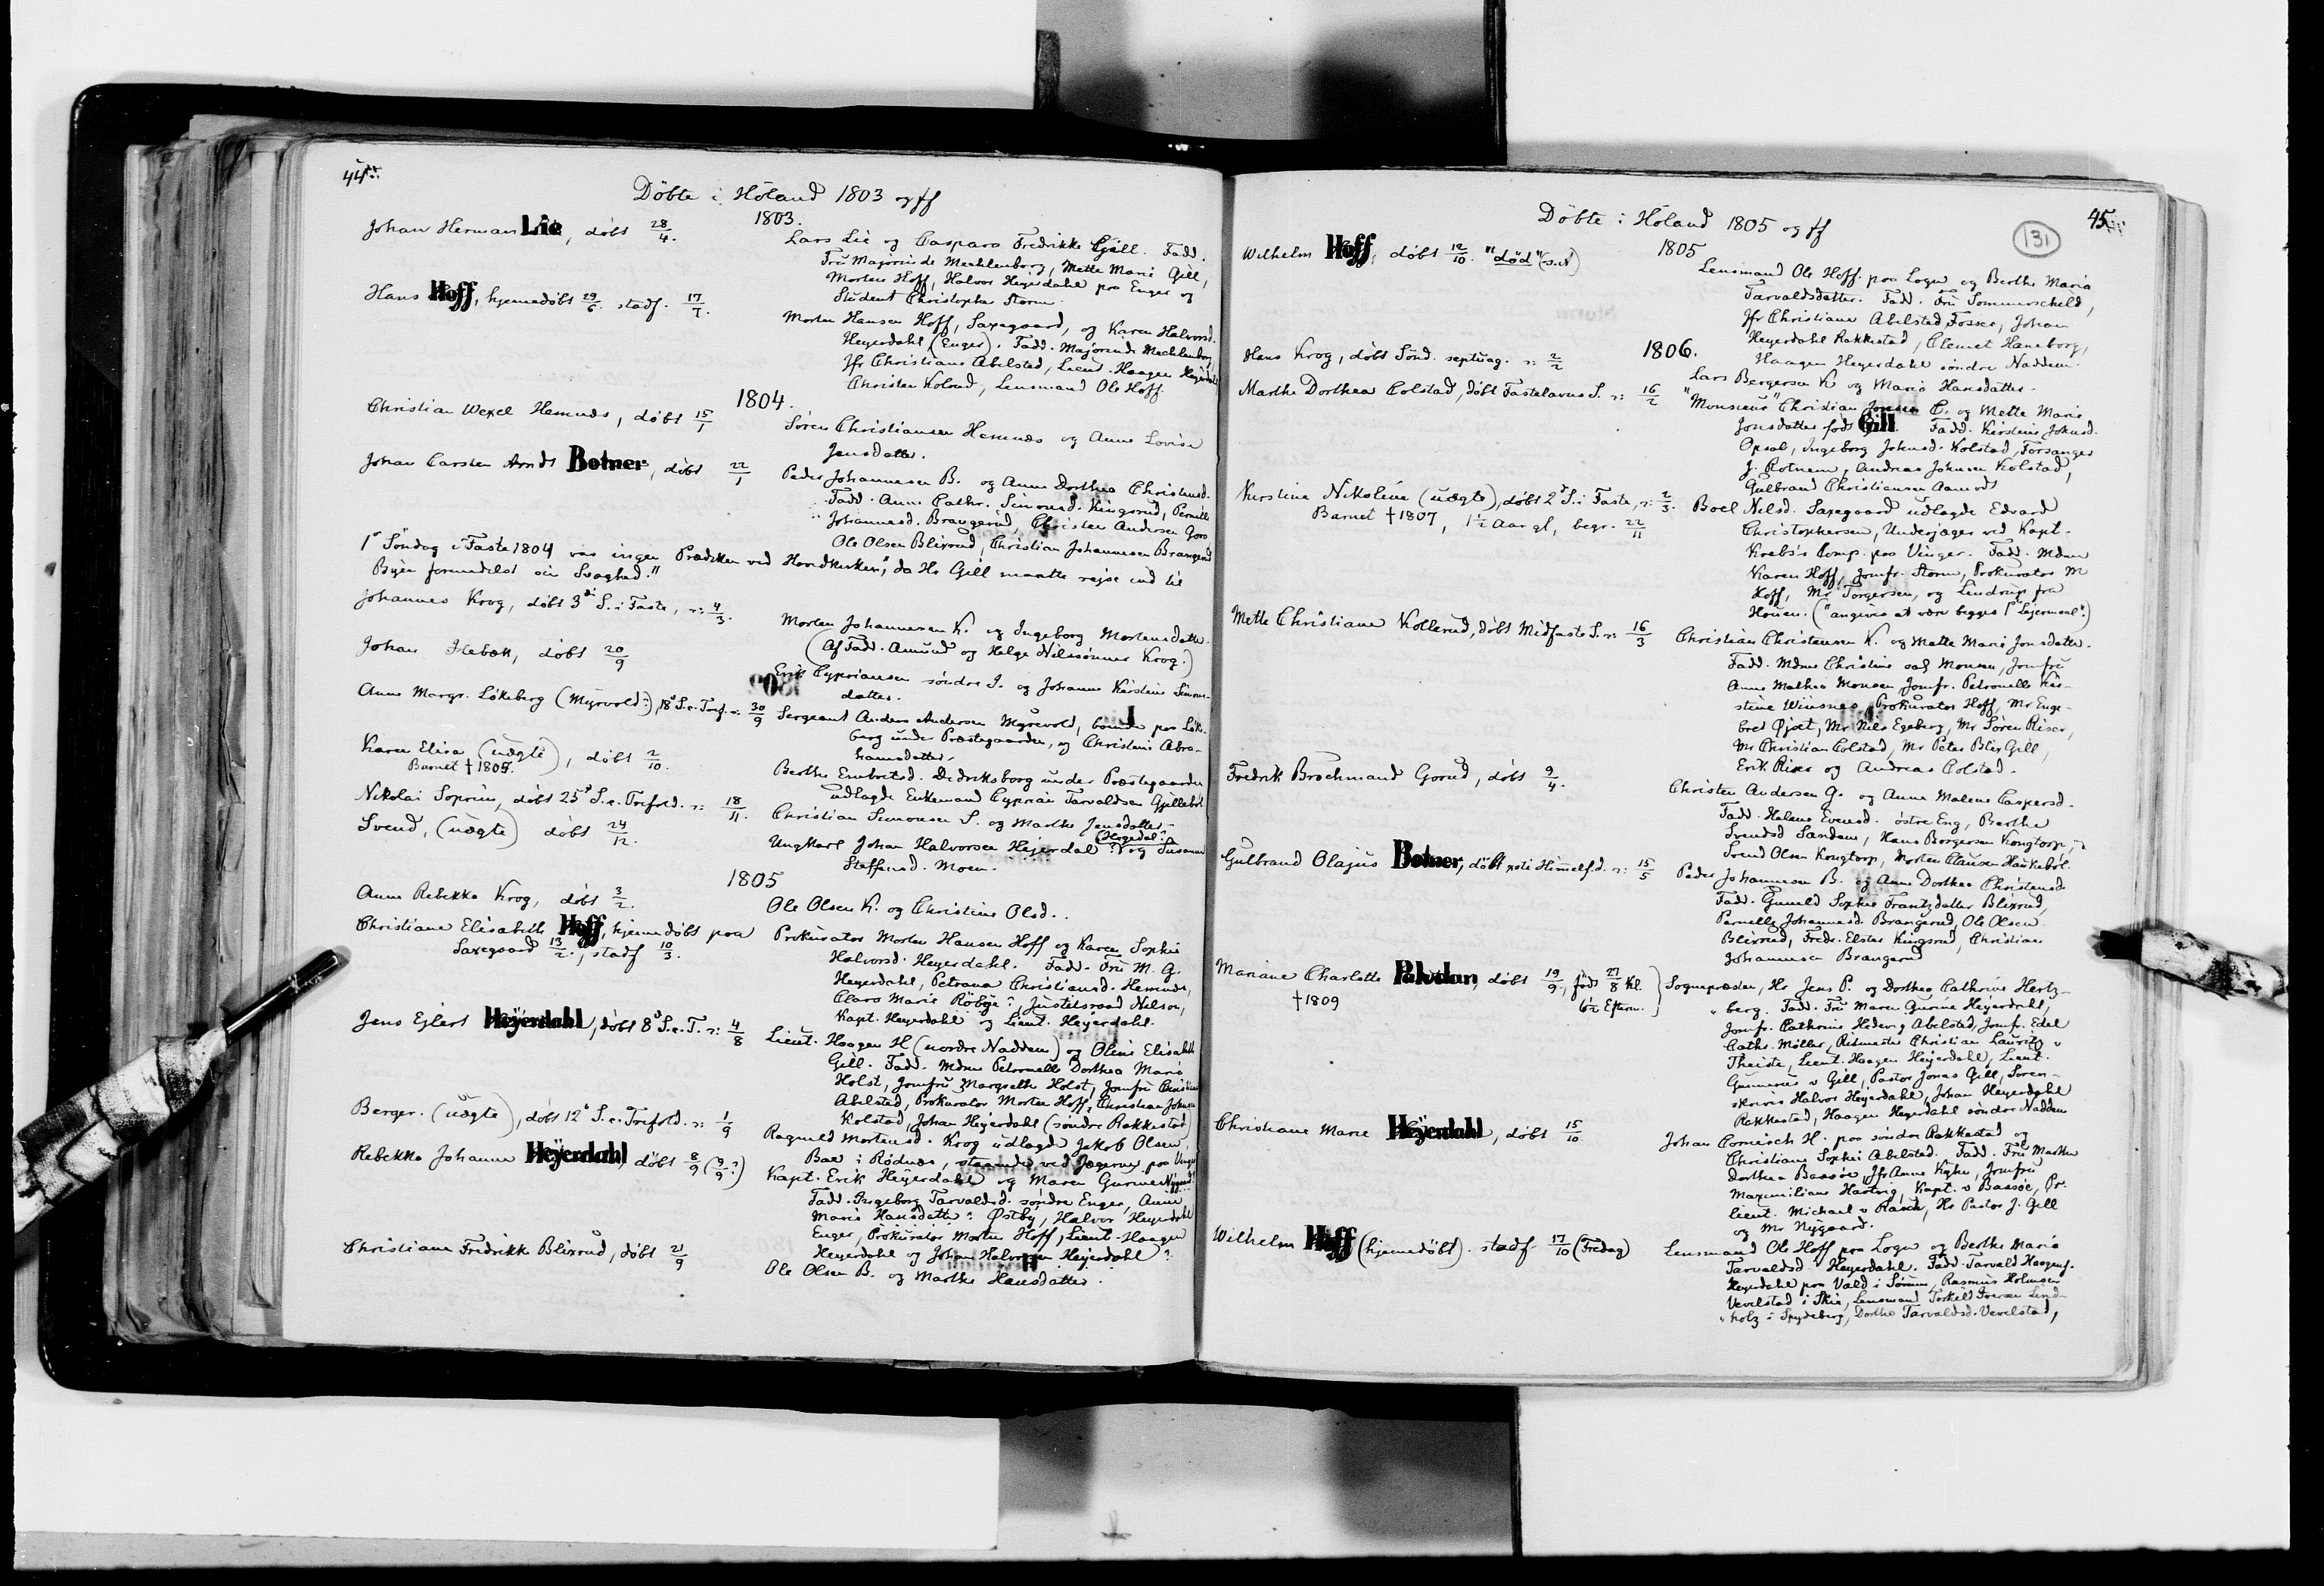 44
Döbte i Höland 1803 og ff
1803.
Johan Herman Lie, döbt 28/4.
Lars Lie og Caspara Fredrikke Gjäll. Fadd.
Fru Majorinde Mechlenborg, Mette Marie Gill,
Morten Hoff, Halvor Heyerdahl paa Enger og
Student Christopher Storm.
Hans Hoff, hjemmedöbt 29/6. stadf. 17/7.
Morten Hansen Hoff, Saxegaard, og Karen Halvorsd.
Heyerdahl (Enger). Fadd. Majorinde Mechlenborg,
Jfr Christiane Abelsted, Lieut. Haagen Heyerdahl
Christen Kolsrud, Lensmand Ole Hoff.
1804.
Christian Wexel Hemnæs, döbt 15/1
Sören Christiansen Hemnæs og Anne Lovise
Jensdatter.
Johan Carsten Arndt Botner, döbt 22/1
Peder Johannesen B. og Anne Dorthea Christensd.
Fadd. Anne Cathr. Simonsd. Kingsrud, Pernille
Johannesd. Brangerud, Christen Andersen Goro
Ole Olsen Blixrud, Christian Johannesen Brangerud
1ste Söndag i Faste 1804 var ingen Prædiken ved Hovedkirken, da Hr Gill maatte rejse ind til
Byen formedelst sin Svaghed."
Johannes Krog, döbt 3die S. i Faste, ɔ: 4/3.
Morten Johannesen K. og Ingeborg Mortensdatter.
(Af Fadd. Amund og Helge Nilssönner Krog.)
Johan Ilebæk, döbt 20/9
Erik Cypriansen söndre I. og Johanne Kirstine Simons-
datter.
Anne Margr. Lökeberg (Myrvold?), 18de S. e. Tref. ɔ: 30/9
Sergeant Anders Andersen Myrevold, boende paa Löke-
berg under Præstegaarden, og Christine Abra-
hamsdatter.
Karen Elisa (uægte), döbt 2/10.
Barnet † 1805.
Berthe Embretsd. Dedriksborg under Præstegaarden
udlagde Enkemand Cyprian Tarvaldsen Gjelleböl
Nikolai Soprim, döbt 25de S. e. Trefold. ɔ: 18/11.
Christian Simonsen S. og Marthe Jensdatter.
Svend, (uægte) döbt 24/12.
Ungkarl Johan Halvorsen Heierdal (Hegedal?) og Susanne
Steffensd. Moen.
1805
Anne Rebekka Krog, döbt 3/2.
Ole Olsen K. og Christine Olsd.
Christiane Elisabeth Hoff, hjemmedöbt paa
Saxegaard 13/2., stadf 10/3.
Prokurator Morten Hansen Hoff og Karen Sophie
Halvorsd. Heyerdahl. Fadd. Fru M. G.
Heyerdahl, Petrana Christiansd. Hemnæs,
Clara Marie Röbye?, Justitsraad Nilson,
Kapt. Heyerdahl og Lieut. Heyerdahl.
Jens Ejlert Heÿerdahl, döbt 8de S. e. T. ɔ: 4/8
Lieut. Haagen H (nordre Naddem) og Oline Elisabeth
Gill. Fadd. Mdme Petronelle Dorthea Marie
Holst, Jomfru Margrethe Holst, Jomfru Christiane
Abelsted, Prokurator Morten Hoff, Christian Johnsen
Kolstad, Johan Heyerdahl (söndre Rakkestad)
Berger. (uægte), döbt 12te S. e. Trefold. ɔ: 1/9
Ragnild Mortensd. Krog udlagde Jakob Olsen
Boe i Rödnæs, staaende ved Jægerne paa Unger
Rebekka Johanne Heÿerdahl, döbt 8/9 (9/9?)
Kapt. Erik Heyerdahl og Maren Gurine Nygaard.
Fadd. Ingeborg Tarvaldsd. söndre Enger, Anne
Marie Hansdatter? Østby, Halvor Heyerdahl
Enger, Prokurator Morten Hoff, Lieut. Haagen
Heyerdahl og Johan Halvorsen Heyerdahl?
Christiane Fredrikke Blixrud, döbt 21/9
Ole Olsen B. og Marthe Hansdatter.
45
131
Döbte i Höland 1805 og ff
1805
Wilhelm Hoff, döbt 12/10. "död" (s.A)
Lensmand Ole Hoff paa Logn og Berthe Maria
Tarvaldsdatter. Fadd. Fru Sommerscheld,
Jfr Christiane Abelsted Fosser, Johan
Heyerdahl Rakkestad, Clemet Haneborg,
Haagen Heyerdahl söndre Naddem.
1806.
Hans Krog, döbt Sönd. septuag. ɔ: 2/2
Lars Bergersen K og Maria Hansdatter.
Marthe Dorthea Colstad, döbt Fastelavns S. ɔ: 16/2
"Monsieur" Christian Jonsen C. og Mette Marie
Jonsdatter född Gill. Fadd. Kirstine Johnsd.
Opsal, Ingeborg Johnsd. Kolstad, Forsanger
J. Rotnem, Andreas Johnsen Kolstad,
Gulbrand Christiansen Aamodt
Kirstine Nikoline (uægte), döbt 2den S. i Faste, ɔ: 2/3.
Barnet † 1807, 1½ Aar gl, begr. 22/11
Boel Nilsd. Saxegaard udlagde Edvard
Christophersen, Underjæger ved Kapt.
Krebs's Komp. paa Vinger. Fadd. Mdme
Karen Hoff, Jomfr. Storm, Prokurator M
Hoff, Mr Torgersen, og Lendrup fra
Houen. ("angives at være begges 1ste Lejermaal.")
Mette Christiane Kollerud, döbt Midfaste S. ɔ: 16/3
Christian Christensen K. og Mette Marie Jonsdatter.
Fadd. Mdme Christine sal Monsen, Jomfru
Anne Mathea Monsen, Jomfr. Petronelle Kir-
stine Wiusnes, Prokurator Hoff, Mr Enge-
bret Øjset, Mr Nils Egeberg, Mr Sören Riser,
Mr Christian Colstad, Mr Peter Blix Gill,
Erik Riser og Andreas Colstad.
Fredrik Brochmand Gorud, döbt 9/4.
Christen Andersen G. og Anne Malene Caspersd.
Fadd. Helene Evensd. östre Eng, Berthe
Svendsd Sandem, Hans Borgersen Kongtorp,
Svend Olsen Kongtorp, Morten Clausen Haukeböl.
Gulbrand Olajus Botner, döbt xsti Himmelf.d. ɔ: 15/5
Peder Johannesen B. og Anne Dorthea Christensd.
Fadd. Gunild Sophie Frantzdatter Blixrud,
Pernelle Johannesd. Brangerud, Ole Olsen
Blixrud, Fredr. Elster Kingsrud, Christian
Johannesen Brangerud
Mariane Charlotte Paludan, döbt 19/9, föds 27/8 Kl.
6½ Efterm.
† 1809
Sognepræsten, Hr Jens P. og Dorthea Cathrine Hertz-
berg. Fadd. Fru Maren Gurine Heyerdahl,
Jomfr. Cathrine Hedevig Abelsted, Jomfr. Edel
Cathr. Møller, Ritmester Christian Lauritz v
Theiste, Lieut. Haagen Heyerdahl, Lieut.
Gunnerus v Gill, Pastor Jonas Gill, Soren-
skriver Halvor Heyerdahl, Johan Heyerdahl
Rakkestad, Haagen Heyerdahl söndre Naddem
Christiane Marie Heÿerdahl, döbt 15/10.
Johan Cornisch H. paa söndre Rakkestad og
Christiane Sophie Abelsted. Fadd. Fru Marthe
Dorthea Bassöe, Jfr Anne Kyhn, Jomfru
Maximiliane Hartvig, Kapt. v Bassöe, Pr.
Lieut. Michael v Rasch, Hr Pastor J. Gill
og Mr Nygaard.
Wilhelm Hoff (hjemmedöbt). stadf. 17/10 (Fredag)
Lensmand Ole Hoff paa Logn og Berthe Marie
Tarvaldsd. Heyerdahl. Fadd. Tarvald Haagens.
Heyerdahl paa Vald i Sörum, Rasmus Holmsen
Vevelstad i Skie, Lensmand Torkild Iversen Lind-
holz i Spydeberg, Dorthe Tarvaldsd. Vevelstad,